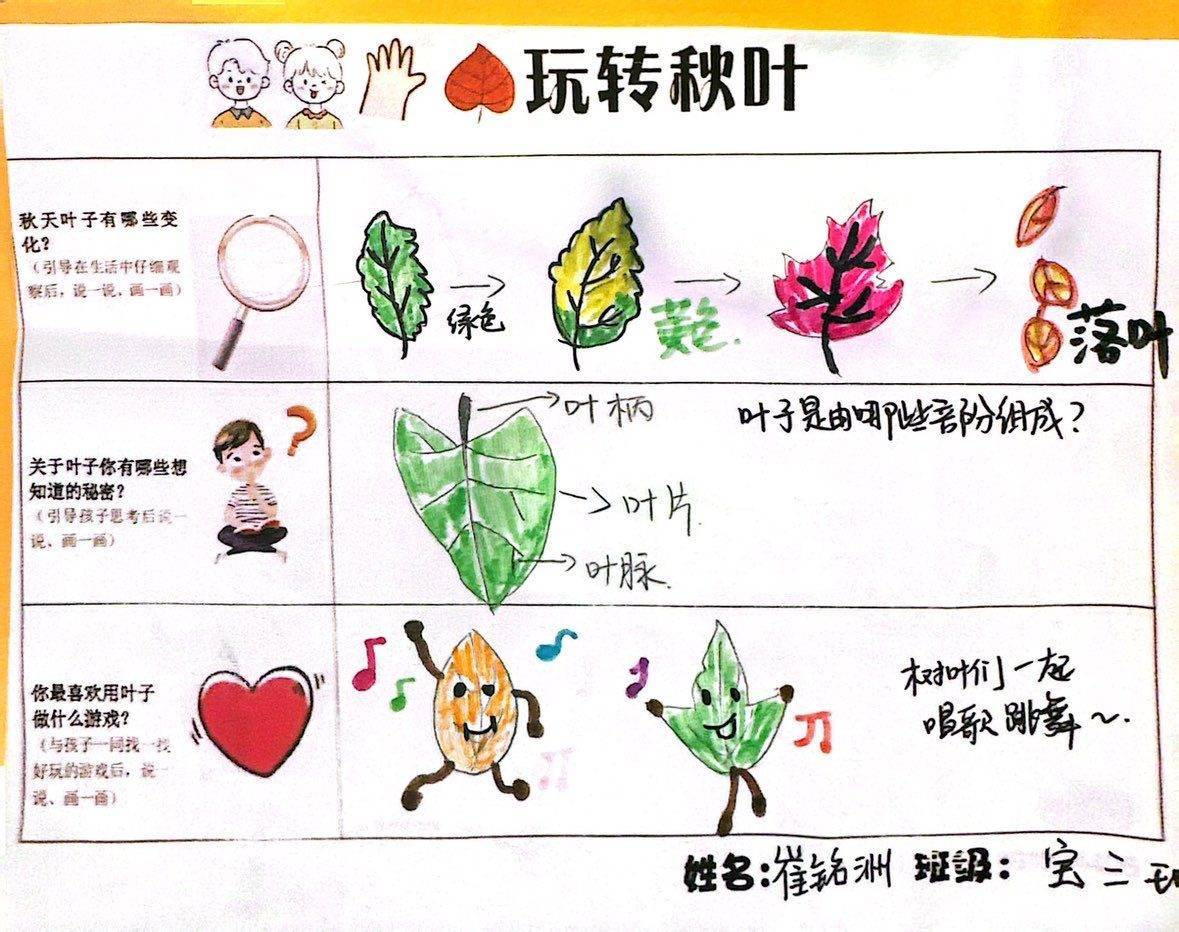 玩转秋叶
秋天叶子有哪些变
化？
（引导在生活中仔细观
察后，说一说，画一画）
绿色
黄色.
落叶
关于叶子你有哪些想
知道的秘密？
（引导孩子思考后说一
说、画一画）
叶柄
叶片.
叶脉.
叶子是由哪些部分组成？
你最喜欢用叶子
做什么游戏？
（与孩子一同找一找
好玩的游戏后，说一
说、画一画）
树叶们一起
唱歌跳舞～.
姓名：崔铭洲 班级：宝三班